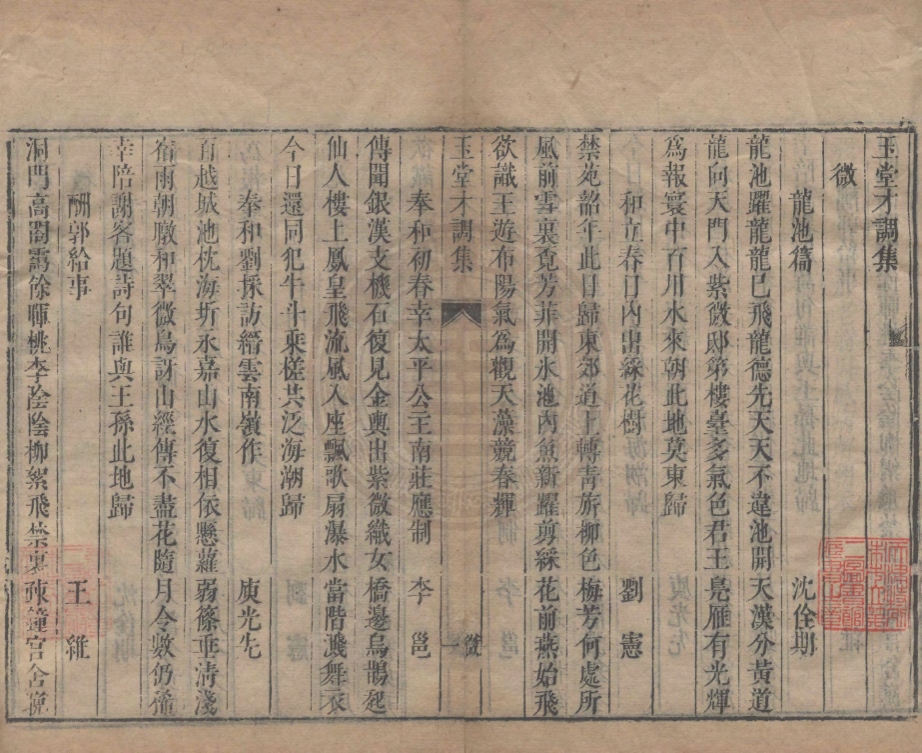 玉堂才調集
微
龍池篇　沈佺期
龍池躍龍龍已飛龍德先天天不違池開天漢分黃道
龍向天門入紫微邸第樓臺多氣色君王鳧雁有光輝
爲報寰中百川水來朝此地莫東歸
和立春日內出綵花樹　劉憲
禁苑韶年此日歸東郊道上轉青旂柳色梅芳何處所
風前雪裏覓芳菲開水池內魚新躍剪綵花前燕始飛
欲識王遊布陽氣爲觀天藻競春輝
玉堂才調集　微　一
奉和初春幸太平公主南莊應制　李邕
傳聞銀漢支機石復見金輿出紫微織女橋邊烏鵲起
仙人樓上鳳皇飛流風入座飄歌扇瀑水當階濺舞衣
今日還同犯牛斗乘槎共泛海潮歸
奉和劉採訪縉雲南嶺作　庾光先
百越城池枕海圻永嘉山水復相依懸蘿弱篠垂淸淺
宿雨朝暾和翠微鳥訝山經傳不盡花隨月令數仍稀
幸陪謝客題詩句誰與王孫此地歸
酬郭給事　王維
洞門高閣靄餘暉桃李陰陰柳絮飛禁裏疎鐘官舍晚